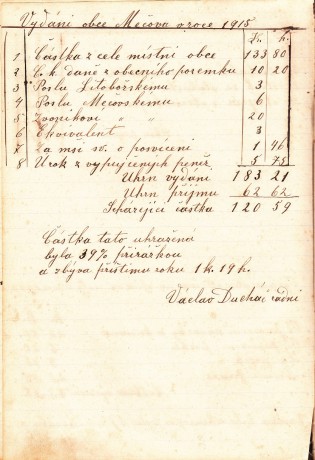 Vydání obce Mečova v roce 1915
K. h.
1 Částka z cele místní obce 133 80
2 C.k. daně z obecního pozemku 10 20
3 Poslu Litobořskému 3
4 Poslu Mečovskému 6
5 Zvoníkovi " " 20
6 Ekvivalent 3
7 Za mši sv. o posvícení 1 46
8 Úrok z vypujčených peněz 5 75
Uhrn vydání 183 21
Uhrn příjmu 62 62
Scházející částka 120 59
Částka tato uhražená
byla 39% přirážkou
a zbývá příštímu roku 1 k. 19 h.
Václav Ducháč radní